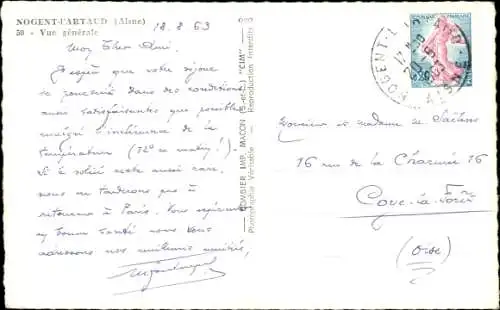 NOGENT-L'ARTAUD (Aisne)
50 - Vue générale
18.8.63
Mon Cher Ami,
J'espère que votre séjour
se poursuit dans des conditions
aussi satisfaisantes que possible
malgré l'inclémence de la
température (12° ce matin!).
Si le soleil reste aussi rare,
nous ne tarderons pas à
retourner à Paris. Vous espérant
en bonne santé nous vous
adressons nos meilleures amitiés,
COMBIER IMP. MACON (S.-et-L.) "CIM"
Photographie Véritable - Reproduction interdite
NOGENT-L'ARTAUD
AISNE
Monsieur et Madame de
16 rue de la Charmée 16
Coye-la-Forêt
(Oise)